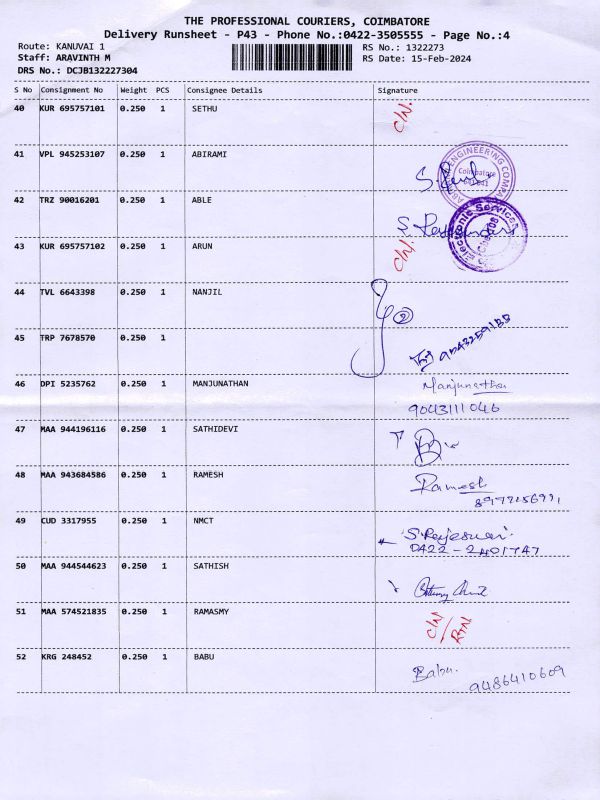 THE PROFESSIONAL COURIERS, COIMBATORE
Delivery Runsheet - P43 - Phone No.:0422-3505555 - Page No.:4
Route: KANUVAI 1 RS No.: 1322273
Staff: ARAVINTH M RS Date: 15-Feb-2024
DRS No.: DCJB132227304
S No Consignment No Weight PCS Consignee Details Signature
40 KUR 695757101 0.250 1 SETHU C/N.
41 VPL 945253107 0.250 1 ABIRAMI
ENGINEERING
Coimbatore
42 TRZ 90016201 0.250 1 ABLE
Electronic Services
43 KUR 695757102 0.250 1 ARUN C/N.
44 TVL 6643398 0.250 1 NANJIL 2
45 TRP 7678570 0.250 1
46 DPI 5235762 0.250 1 MANJUNATHAN Manjunathan
9043111046
47 MAA 944196116 0.250 1 SATHIDEVI
48 MAA 943684586 0.250 1 RAMESH Ramesh
49 CUD 3317955 0.250 1 NMCT S. Rajeswari
0422-2401747
50 MAA 944544623 0.250 1 SATHISH
51 MAA 574521835 0.250 1 RAMASMY C/N / RTN
52 KRG 248452 0.250 1 BABU Babu.
9486410609